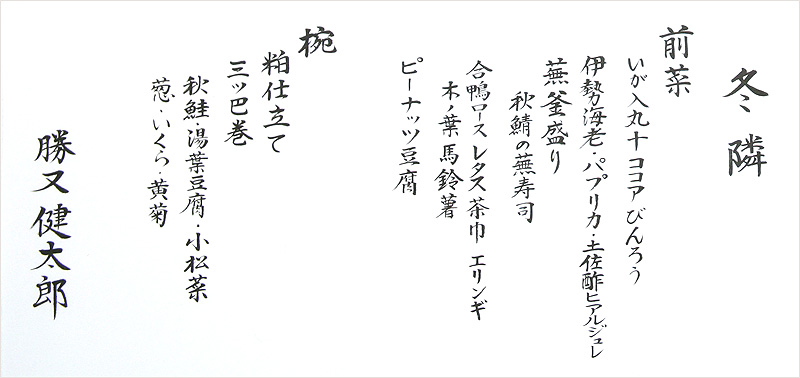 冬隣
前菜
いが入丸十 ココア びんろう
伊勢海老・パプリカ・土佐酢ヒアルジュレ
蕪釜盛り
秋鯖の蕪寿司
合鴨ロース レタス 茶巾 エリンギ
木ノ葉馬鈴薯
ピーナッツ豆腐
椀
粕仕立て
三ッ巴巻
秋鮭・湯葉豆腐・小松菜
葱・いくら・黄菊
勝又健太郎